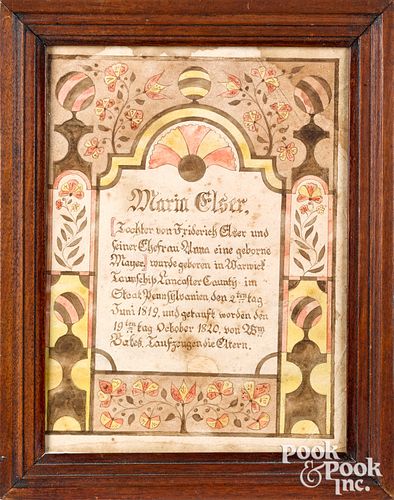 Maria Elser,
Tochter von Friderich Elser und
seiner Ehefrau Anna eine geborne
Mayer, wurde geboren in Warwick
Taunschib Lancaster County im
Staat Pennsylvanien den 2ten tag
Juni 1819, und getauft worden den
19ten tag October 1820, von Wm
Bates. Taufzeugen die Eltern.
POOK
& POOK
INC.